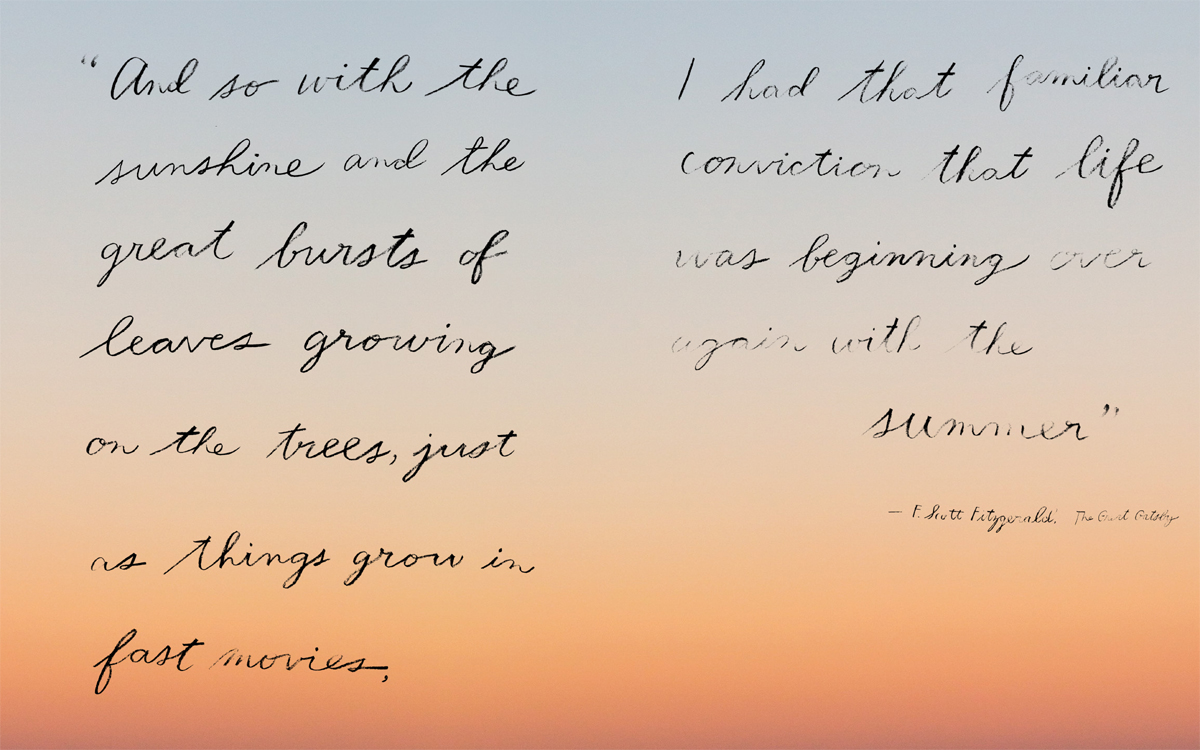 “And so with the
sunshine and the
great bursts of
leaves growing
on the trees, just
as things grow in
fast movies,
I had that familiar
conviction that life
was beginning over
again with the
summer”
— F. Scott Fitzgerald, The Great Gatsby